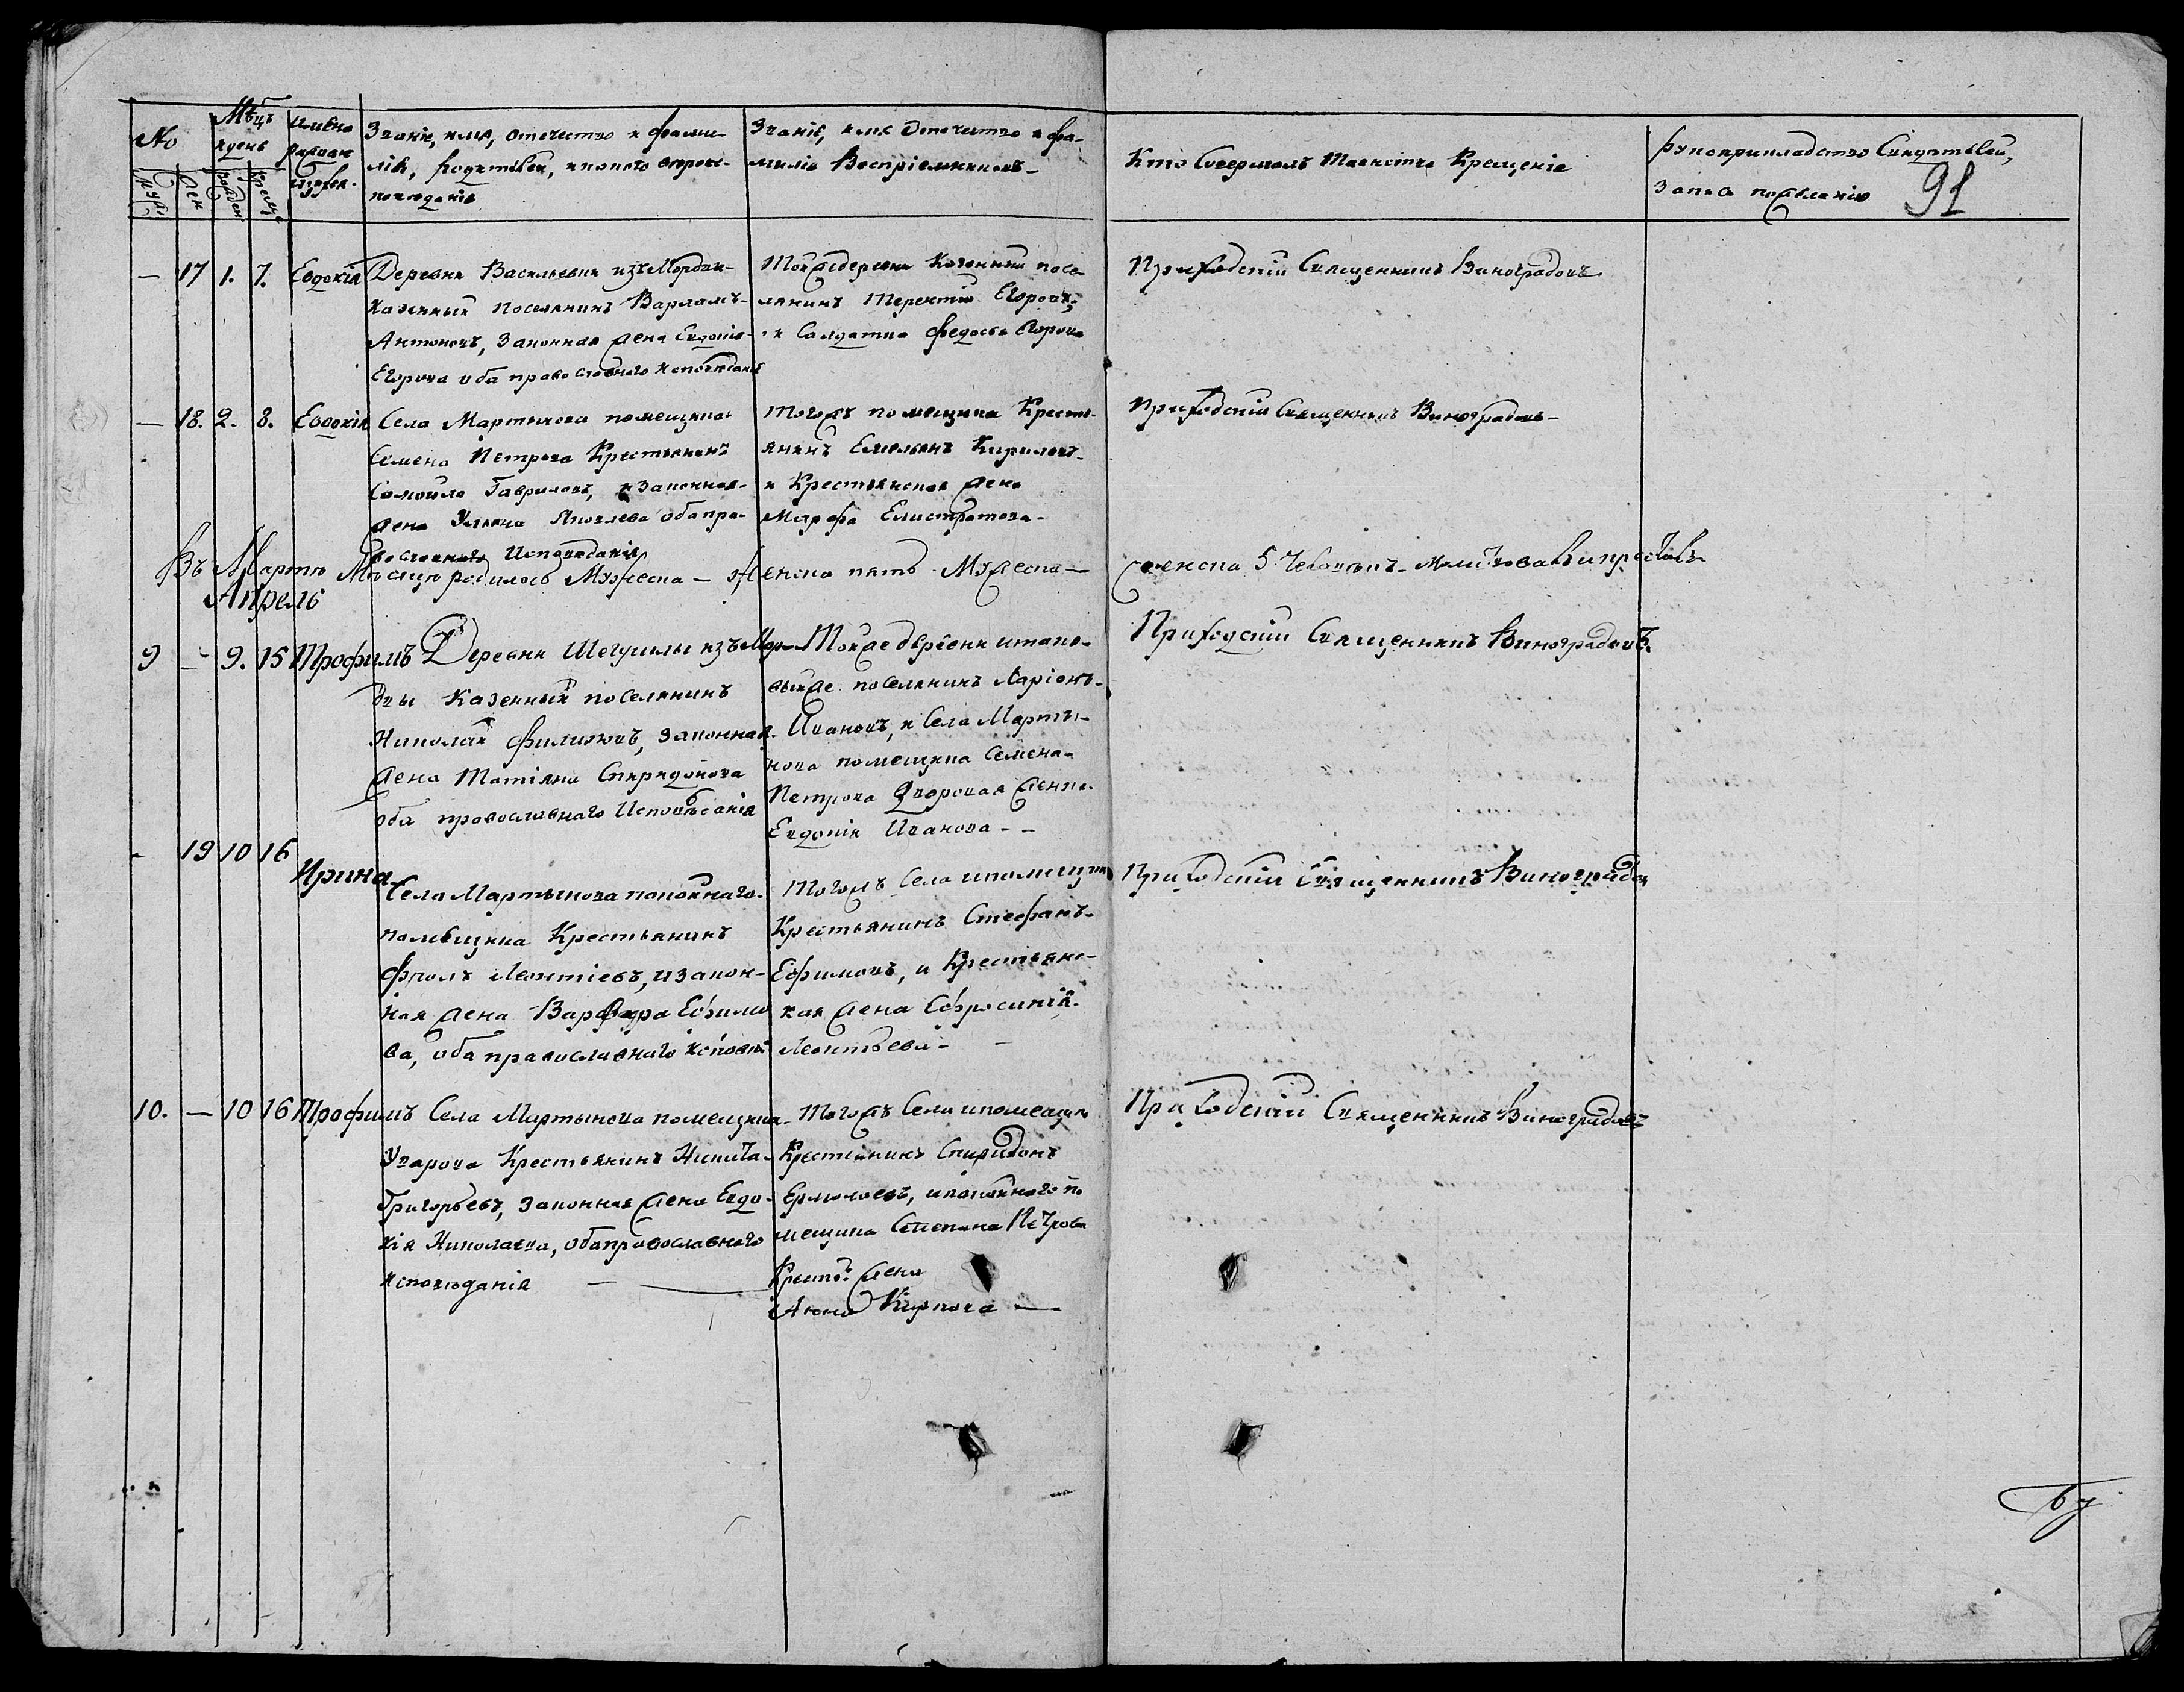 No
Мцъ
и день
имена
раждаю
щихся.
Муж.
Жен
рожден.
креще
Званiе, имя, отечество и фами-
лiя, родителей, и какого вѣроис-
поведанiя
Званiе, имя отечество и фа-
милiя Воспрiемниковъ
Кто Совершалъ таинство Крещенiе
Рукоприкладство Свидѣтелей,
записи по желанiю
91
— 17 1. 7. Евдокiя
Деревни Васильевки изъ Мордви
Казенный поселянинъ Варламъ
Антоновъ, законная жена Евдокiя
Егорова оба православного исповѣданiя
Той же деревни Казенный посе
лянинъ Терентiй Егоровъ,
и Салдатка Федосья Егорова
Приходскiй Священникъ Виноградовъ
— 18. 2. 8. Евдокiя
Села Мартынова помещика
Семена Петрова Крестьянинъ
Самойло Гавриловъ, и законная
жена Ульяна Яковлева оба пра-
вославного Исповѣданiя
тогожъ помещика Кресть-
янинъ Емельянъ Кириловъ
и Крестьянская жена
Марфа Елистратова
Приходскiй Священникъ Виноградовъ
Въ Мартѣ Мѣсяцѣ родилось Мужеска — Женска пять Мужеска —
женска 5 человекъ
Апрель
9 — 9. 15 Трофимъ
Деревни Шегушлы изъ Мор-
двы Казенный поселянинъ
Николай Филиповъ, законная
жена Татiяна Спиридонова
оба православнаго Исповѣданiя
Той же деревни и тако-
выйже поселянинъ Ларiонъ
Ивановъ, и Села Марты-
нова помещика Семена
Петрова Дворовая женка
Евдокiя Иванова
Приходскiй Священникъ Виноградовъ.
- 19 10 16 Ирина
Села Мартынова покойнаго
помѣщика Крестьянинъ
Фролъ Леонтiевъ, и закон-
ная жена Варвара Ефимо
ва, оба православнаго исповѣ
тогожъ Села и помещика
Крестьянинъ Стефанъ
Ефимовъ, и Крестьянс-
кая жена Ефросинiя
Леонтьева
Приходскiй Священникъ Виноградовъ
10. — 10 16 Трофимъ
Села Мартынова помещика
Уварова Крестьянинъ Никита
Григорьевъ, законная жена Евдо-
кiя Николаева, оба православнаго
исповѣданiя
тогожъ Села и помещика
Крестьянинъ Спиридонъ
Ермолаевъ, и покойного по
мещика Степана Петрова
Крестьс. жена
Карпова
Приходскiй Священникъ Виноградовъ